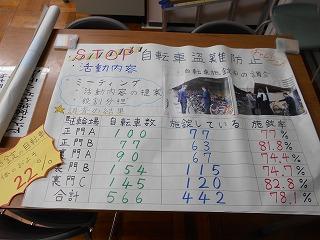 STOP 自転車盗難防止
・活動内容
・ミーティング
・活動内容の提案
・役割分担
駐輪場 自転車数 施錠している 施錠率
正門A 100 77 77%
正門B 77 63 81.8%
裏門A 90 67 74.4%
裏門B 154 115 74.7%
裏門C 145 120 82.8%
合計 566 442 78.1%
自転車
22%